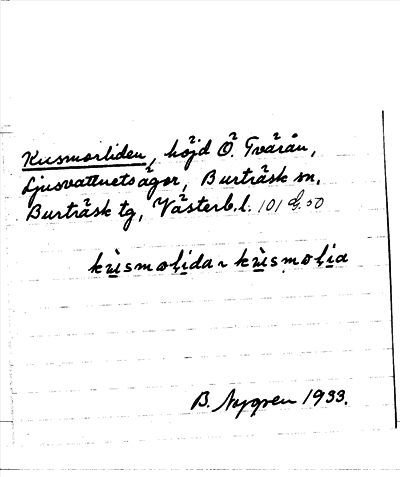 Kusmorliden, höjd Ö. Tvärån,
Ljusvattnets ägor, Burträsk sn,
Burträsk tg, Västerb. l. 101 50
kùsmoḷida ~ kùsmoḷia
B. Nygren 1933.